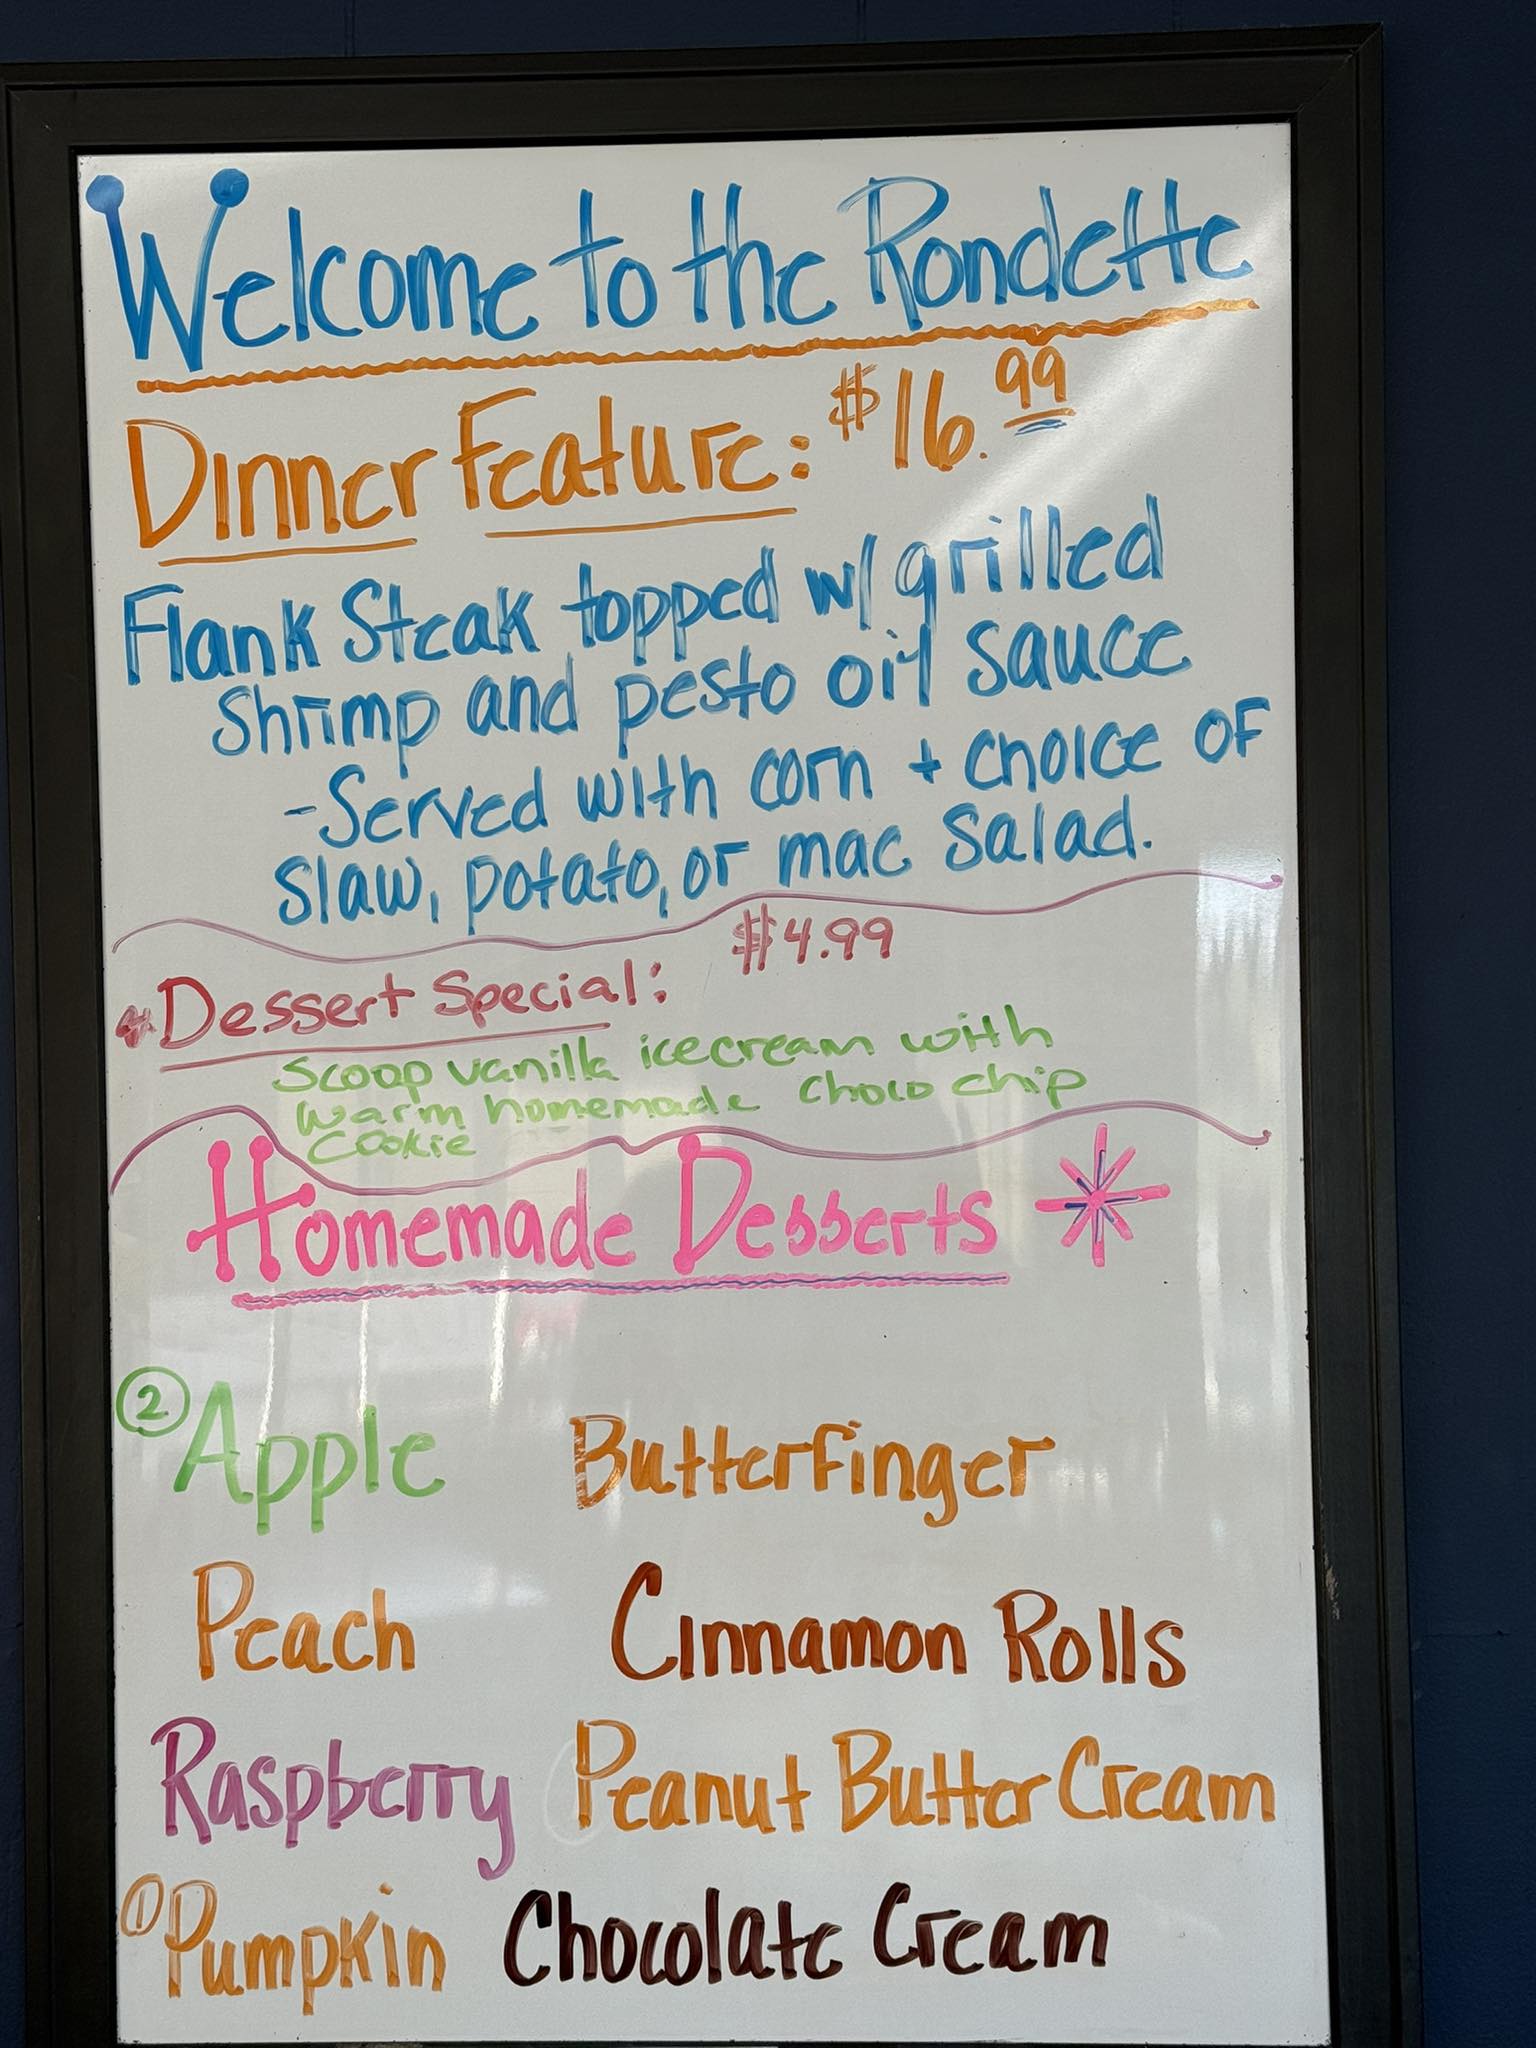 Welcome to the Rondette
Dinner Feature: $16.99
Flank Steak topped w/ grilled
shrimp and pesto oil sauce
- Served with corn + choice of
slaw, potato, or mac salad.
*Dessert Special: $4.99
Scoop vanilla icecream with
warm homemade choco chip
cookie
Homemade Desserts
② Apple Butterfinger
Peach Cinnamon Rolls
Raspberry Peanut Butter Cream
① Pumpkin Chocolate Cream